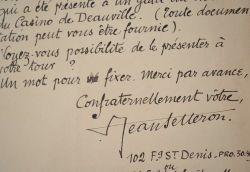 qui a été présenté à un gala
du Casino de Deauville. (Toute documen
tation peut vous être fournie).
Voyez-vous possibilité de le présenter à
votre tour ?
Un mot pour fixer. Merci par avance,
Confraternellement vôtre,
Jean Selleron.
102 Fg St Denis. PRO. 30.
ou